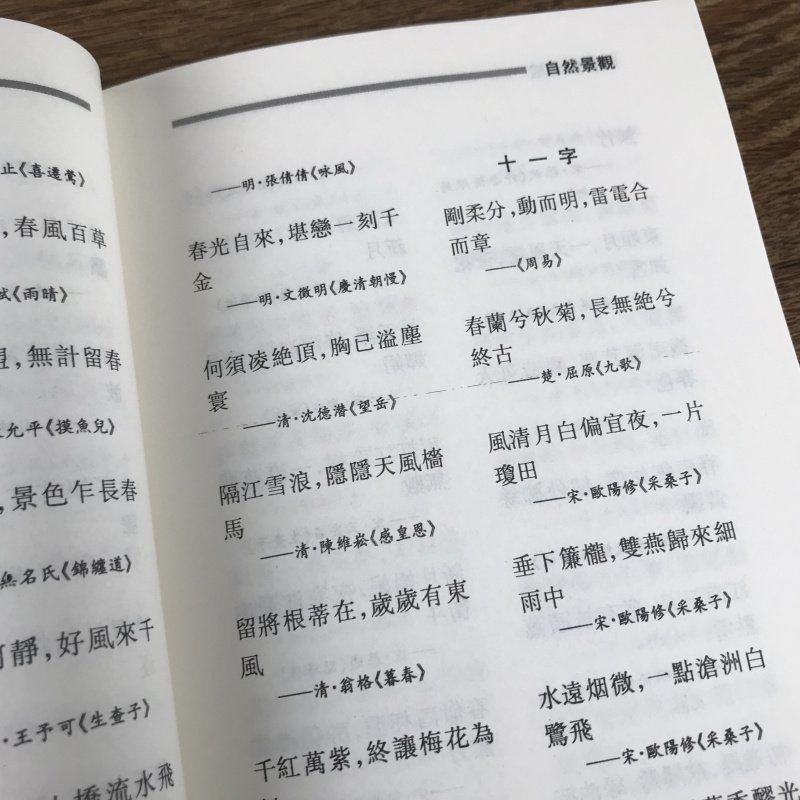 止《喜遷鶯》
，春風百草
《雨晴》
，無計留春
允平《摸魚兒》
，景色乍長春
無名氏《錦纏道》
靜，好風來千
·王予可《生查子》
橋流水飛
自然景觀
——明·張倩倩《咏風》
春光自來，堪戀一刻千
金
——明·文徵明《慶清朝慢》
何須凌絶頂，胸已溢塵
寰
——清·沈德潜《望岳》
隔江雪浪，隱隱天風檣
馬
——清·陳維崧《感皇恩》
留將根蒂在，歲歲有東
風
——清·翁格《暮春》
千紅萬紫，終讓梅花為
十一字
剛柔分，動而明，雷電合
而章
——《周易》
春蘭兮秋菊，長無絶兮
終古
——楚·屈原《九歌》
風清月白偏宜夜，一片
瓊田
——宋·歐陽修《采桑子》
垂下簾櫳，雙燕歸來細
雨中
——宋·歐陽修《采桑子》
水遠烟微，一點滄洲白
鷺飛
——宋·歐陽修《采桑子》
香醪光